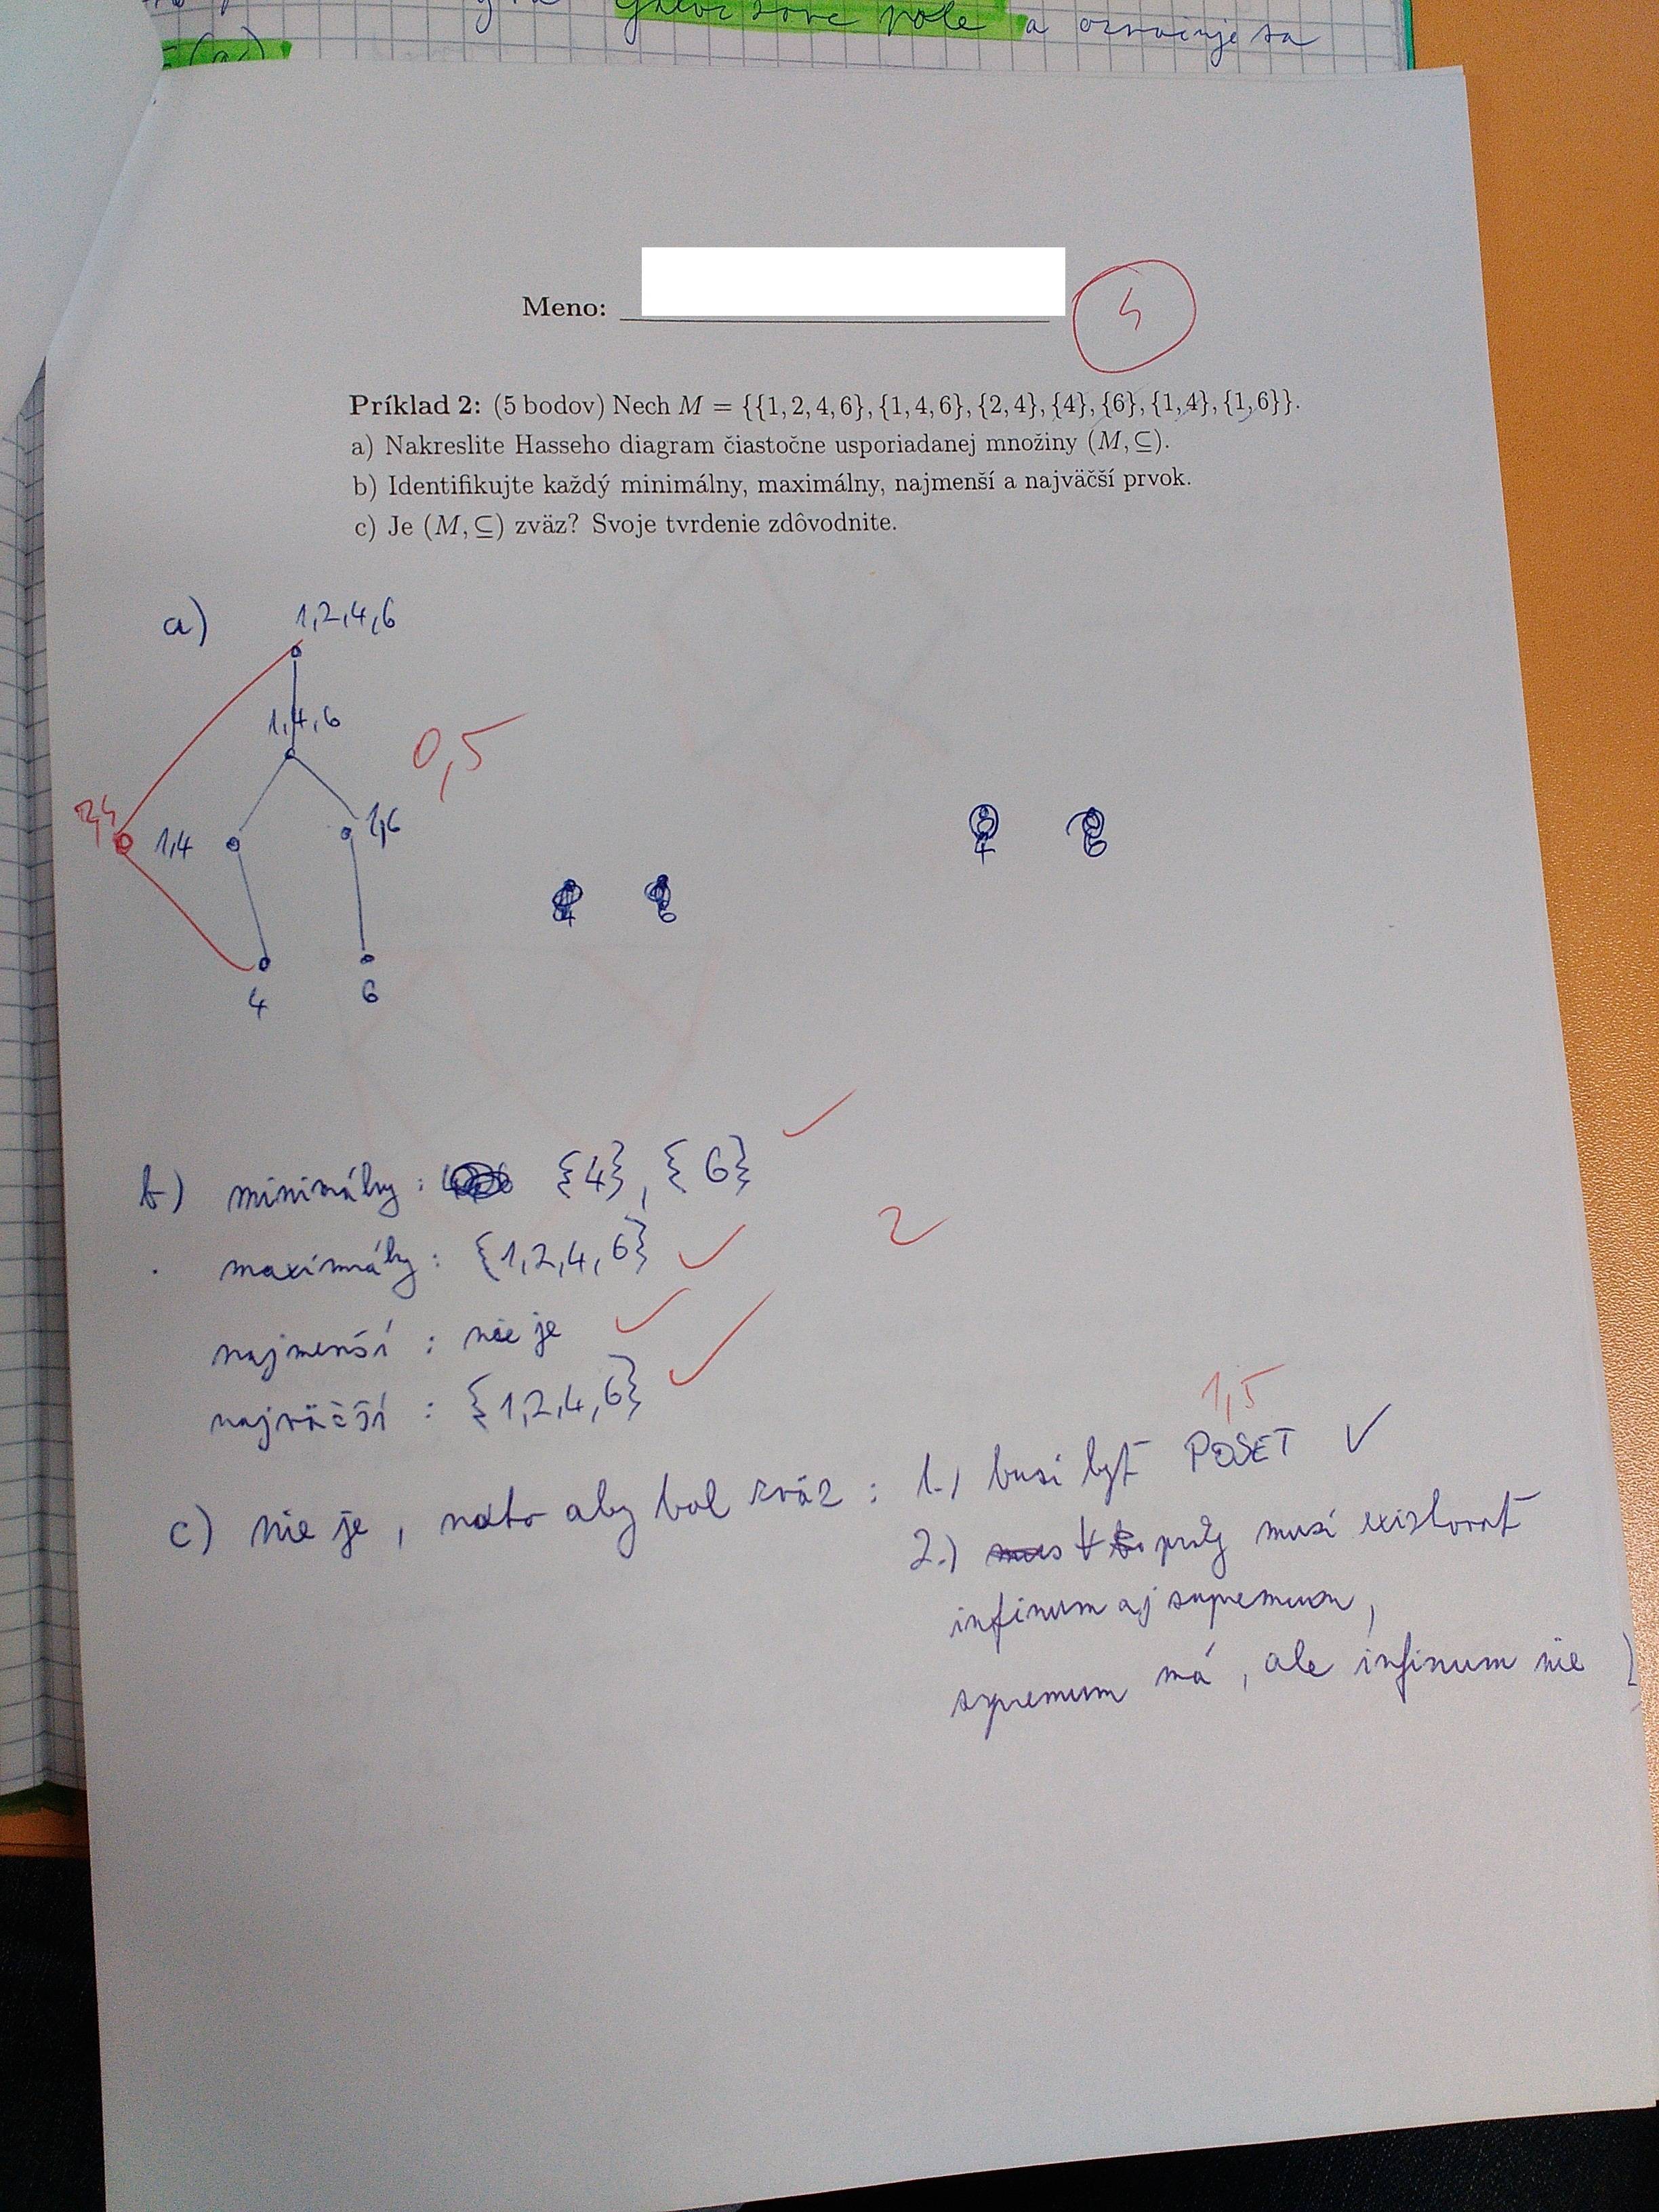 Galoisove pole a označuje sa
Meno:
4
Príklad 2: (5 bodov) Nech M = {{1, 2, 4, 6}, {1, 4, 6}, {2, 4}, {4}, {6}, {1, 4}, {1, 6}}.
a) Nakreslite Hasseho diagram čiastočne usporiadanej množiny (M, ⊆).
b) Identifikujte každý minimálny, maximálny, najmenší a najväčší prvok.
c) Je (M, ⊆) zväz? Svoje tvrdenie zdôvodnite.
a) 1,2,4,6
1,4,6
0,5
2,4 1,4 1,6
4 6
4 6
4 6
b) minimálny: {4}, {6} ✓
maximálny: {1,2,4,6} ✓ 2
najmenší: nie je ✓
najväčší: {1,2,4,6} ✓
1,5
c) nie je, nato aby bol zväz: 1.) musí byť POSET ✓
2.) ∀ prvky musí existovať
infinum aj supremum,
supremum má, ale infinum nie